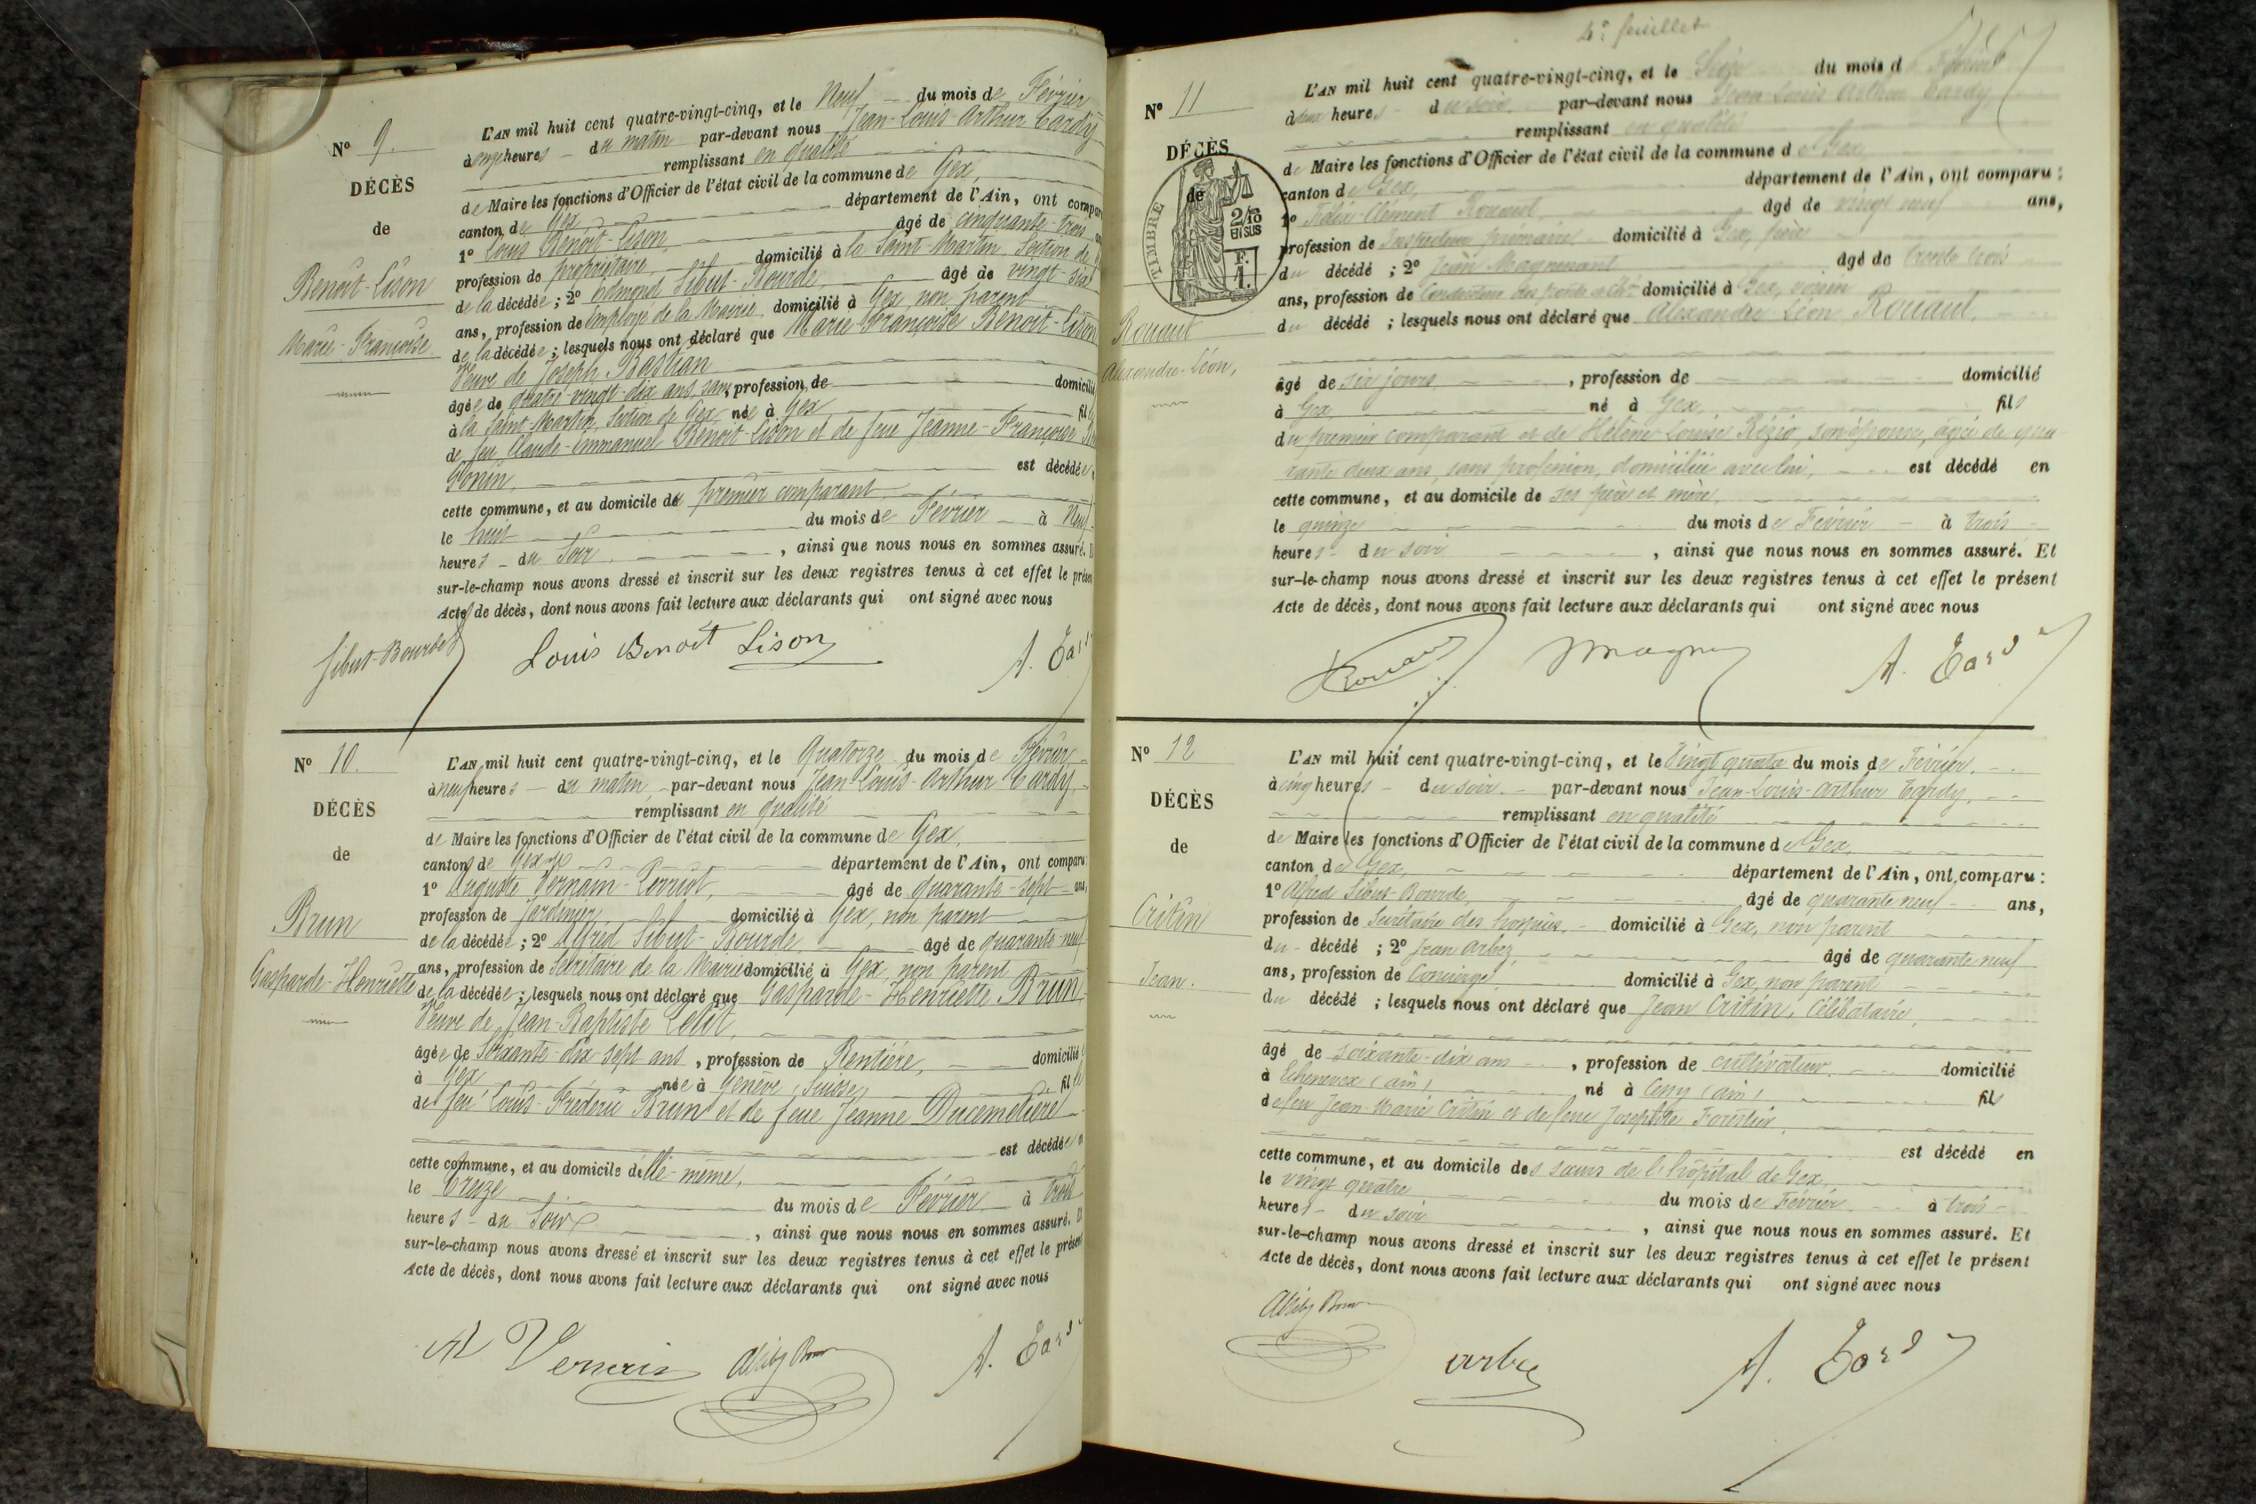 N° 9.
DÉCÈS
de
Benoît-Lison
Marie-Françoise
L'AN mil huit cent quatre-vingt-cinq, et le Neuf du mois de Février
à onze heures du matin par-devant nous Jean-Louis-Arthur Tardy
remplissant en qualité
de Maire les fonctions d'Officier de l'état civil de la commune de Gex,
canton de Gex département de l'Ain, ont compar
1° Louis Benoît-Lison âgé de cinquante-trois
profession de propriétaire, domicilié à la Saint-Martin, Section de
de la décédée ; 2° Edmond Sibut-Bourde âgé de vingt-six
ans, profession de Employé de la Mairie, domicilié à Gex non parent
de la décédée ; lesquels nous ont déclaré que Marie-Françoise Benoît-Lison
Veuve de Joseph Bastian
âgée de quatre-vingt-dix ans, sans profession de domicilié
à la Saint Martin, Section de Gex, née à Gex fil
de feu Claude-Emmanuel Benoît-Lison et de feue Jeanne-Françoise
Gonin, est décédée,
cette commune, et au domicile du premier comparant
le huit du mois de Février à Neuf
heures du Soir, ainsi que nous nous en sommes assuré.
sur-le-champ nous avons dressé et inscrit sur les deux registres tenus à cet effet le présen
Acte de décès, dont nous avons fait lecture aux déclarants qui ont signé avec nous
Sibut-Bourde Louis Benoît Lison A. Tardy
N° 10.
DÉCÈS
de
Brun
Gasparde-Henriette
L'AN mil huit cent quatre-vingt-cinq, et le Quatorze du mois de Février
à neuf heures du matin par-devant nous Jean-Louis-Arthur Tardy
remplissant en qualité
de Maire les fonctions d'Officier de l'état civil de la commune de Gex,
canton de Gex département de l'Ain, ont comparu
1° Auguste Vernain-Perriot, âgé de quarante-sept ans,
profession de Jardinier, domicilié à Gex, non parent
de la décédée ; 2° Alfred Sibut-Bourde, âgé de quarante-neuf
ans, profession de Secrétaire de la Mairie domicilié à Gex non parent
de la décédée ; lesquels nous ont déclaré que Gasparde-Henriette Brun
Veuve de Jean-Baptiste
âgée de Soixante-dix-sept ans, profession de Rentière, domicilié
à Gex née à Genève (Suisse) fil
de feu Louis-Frédéric Brun et de feue Jeanne Ducimetière
est décédée
cette commune, et au domicile d'elle-même,
le treize du mois de Février à trois
heures du Soir, ainsi que nous nous en sommes assuré.
sur-le-champ nous avons dressé et inscrit sur les deux registres tenus à cet effet le présent
Acte de décès, dont nous avons fait lecture aux déclarants qui ont signé avec nous
A. Tardy
4e feuillet
N° 11
DÉCÈS
de
TIMBRE
2/10 EN SUS
F. 1.
Rouaut
Alexandre-Léon,
L'AN mil huit cent quatre-vingt-cinq, et le Seize du mois de Février
à deux heures du soir par-devant nous Jean-Louis Arthur Tardy
remplissant en qualité
de Maire les fonctions d'Officier de l'état civil de la commune de Gex
canton de Gex, département de l'Ain, ont comparu :
1° Clément Rouaut âgé de vingt neuf ans,
profession de Inspecteur primaire domicilié à Gex, père
du décédé ; 2° Jean Magnenant âgé de trente trois
ans, profession de Conducteur des ponts et Ch. domicilié à Gex, voisin
du décédé ; lesquels nous ont déclaré que Alexandre Léon Rouaut,
âgé de six jours, profession de domicilié
à Gex né à Gex, fils
du premier comparant et de Hélène-Louise Régio, son épouse, âgée de qua
rante deux ans, sans profession, domiciliée avec lui, est décédé en
cette commune, et au domicile de ses père et mère,
le quinze du mois de Février à trois
heures du soir, ainsi que nous nous en sommes assuré. Et
sur-le-champ nous avons dressé et inscrit sur les deux registres tenus à cet effet le présent
Acte de décès, dont nous avons fait lecture aux déclarants qui ont signé avec nous
A. Tardy
N° 12
DÉCÈS
de
Critin
Jean.
L'AN mil huit cent quatre-vingt-cinq, et le Vingt quatre du mois de Février.
à cinq heures du soir par-devant nous Jean-Louis-Arthur Tardy,
remplissant en qualité
de Maire les fonctions d'Officier de l'état civil de la commune de Gex,
canton de Gex, département de l'Ain, ont comparu :
1° Alfred Sibut-Bourde, âgé de quarante neuf ans,
profession de Secrétaire des hospices, domicilié à Gex, non parent
du décédé ; 2° Jean Arbez, âgé de quarante-neuf
ans, profession de Concierge, domicilié à Gex, non parent
du décédé ; lesquels nous ont déclaré que Jean Critin, Célibataire,
âgé de soixante-dix ans, profession de cultivateur domicilié
à Echenevex (ain) né à Cessy (ain) fils
de feu Jean-Marie Critin et de feue Josephte Forestier,
est décédé en
cette commune, et au domicile des sœurs de l'hôpital de Gex
le vingt quatre du mois de Février à trois
heures du soir, ainsi que nous nous en sommes assuré. Et
sur-le-champ nous avons dressé et inscrit sur les deux registres tenus à cet effet le présent
Acte de décès, dont nous avons fait lecture aux déclarants qui ont signé avec nous
Arbez A. Tardy